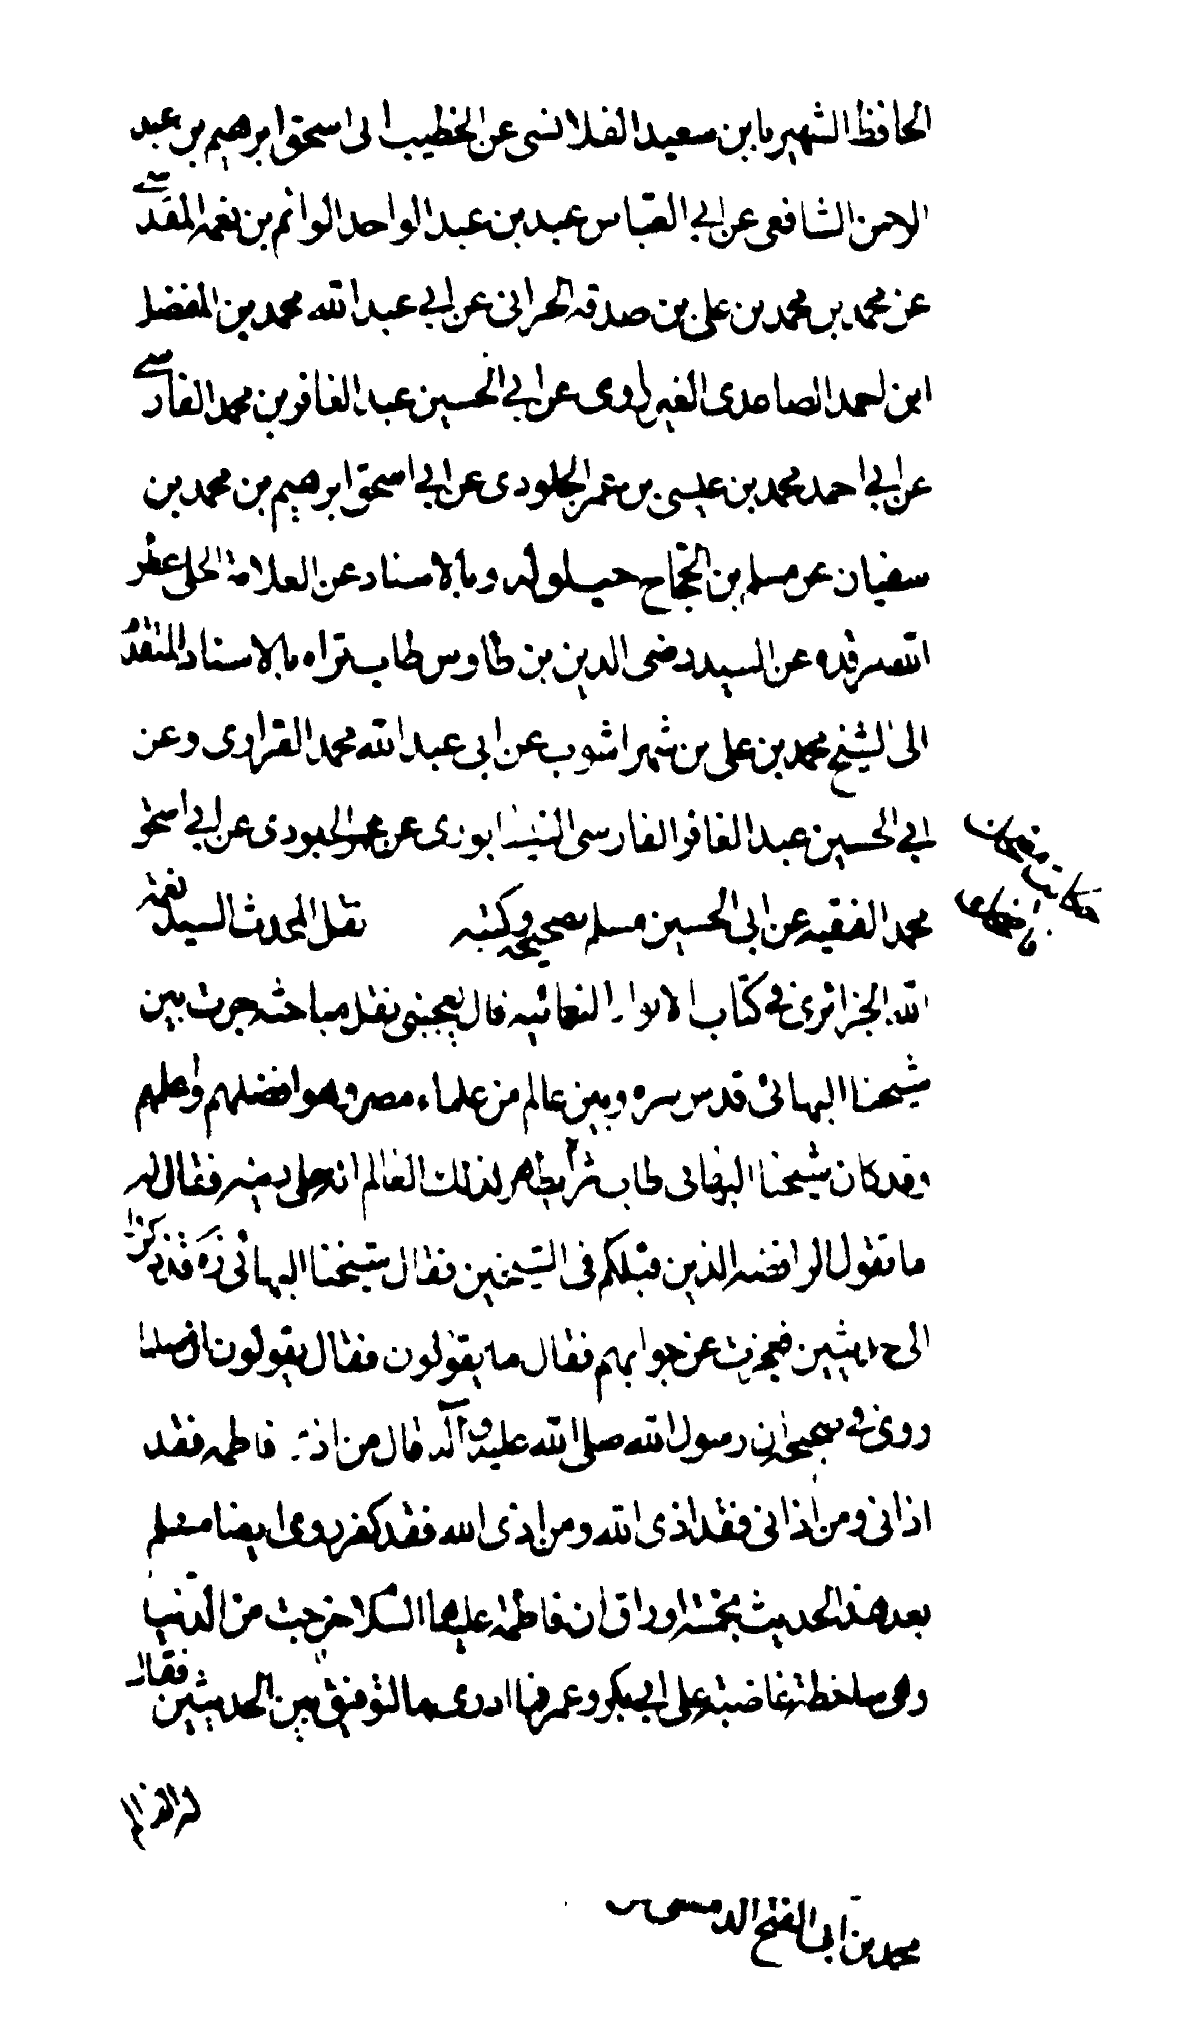 الحافظ الشهير بابن سعيد الفلانسى عن الخطيب ابى اسحق ابرهيم بن عبد
الرحمن الشافعى عن ابي العباس عبد بن عبد الواحد الوانم بن نعمه المقدسى
عن محمد بن محمد بن على بن صدقه الحرانى عن ابي عبد الله محمد بن المفضل
ابن احمد الصاعدى الفيراوى عن ابي الحسين عبد الغافر بن محمد الفارسى
عن ابي احمد محمد بن عيسى بن عمر الجلودى عن ابي اسحق ابرهيم بن محمد بن
سفيان عن مسلم بن الحجاج حيلوله وبالاسناد عن العلامة الحلى عطر
الله مرقده عن السيد رضى الدين بن طاوس طاب تراه بالاسناد المتقدم
الى الشيخ محمد بن على بن شهراشوب عن ابى عبد الله محمد الفراوى وعن
ابي الحسين عبد الغافر الفارسى النيسابورى عن الجلودى عن ابي اسحق
محمد الفقيه عن ابى الحسين مسلم بصحيحه وكتبه نقل المحدث السيد نعمة
الله الجزائرى في كتاب الانوار النعمانيه قال يعجبنى نقل مباحثه جرت بين
شيخنا البهائى قدس سره وبين عالم من علماء مصر وهو افضلهم واعلمهم
وقد كان شيخنا البهائى طاب ثراه يظهر لذلك العالم انه على دينه فقال له
ما تقول الرافضه الذين قبلكم فى الشيخين فقال شيخنا البهائى ره قد ذكروا
الى حديثين فعجزت عن جوابهم فقال ما يقولون فقال يقولون ان مسلما
روى في صحيحه ان رسول الله صلى الله عليه وآله قال من اذى فاطمه فقد
اذانى ومن اذانى فقد اذى الله ومن اذى الله فقد كفر وروى ايضا مسلم
بعد هذا الحديث بخمسة اوراق ان فاطمة عليها السلام خرجت من الدنيا
وهى ساخطة غاضبة على ابي بكر وعمر فما ادرى ما التوفيق بين الحديثين فقال
له العالم
محمد بن ابى الفتح الدمسقى